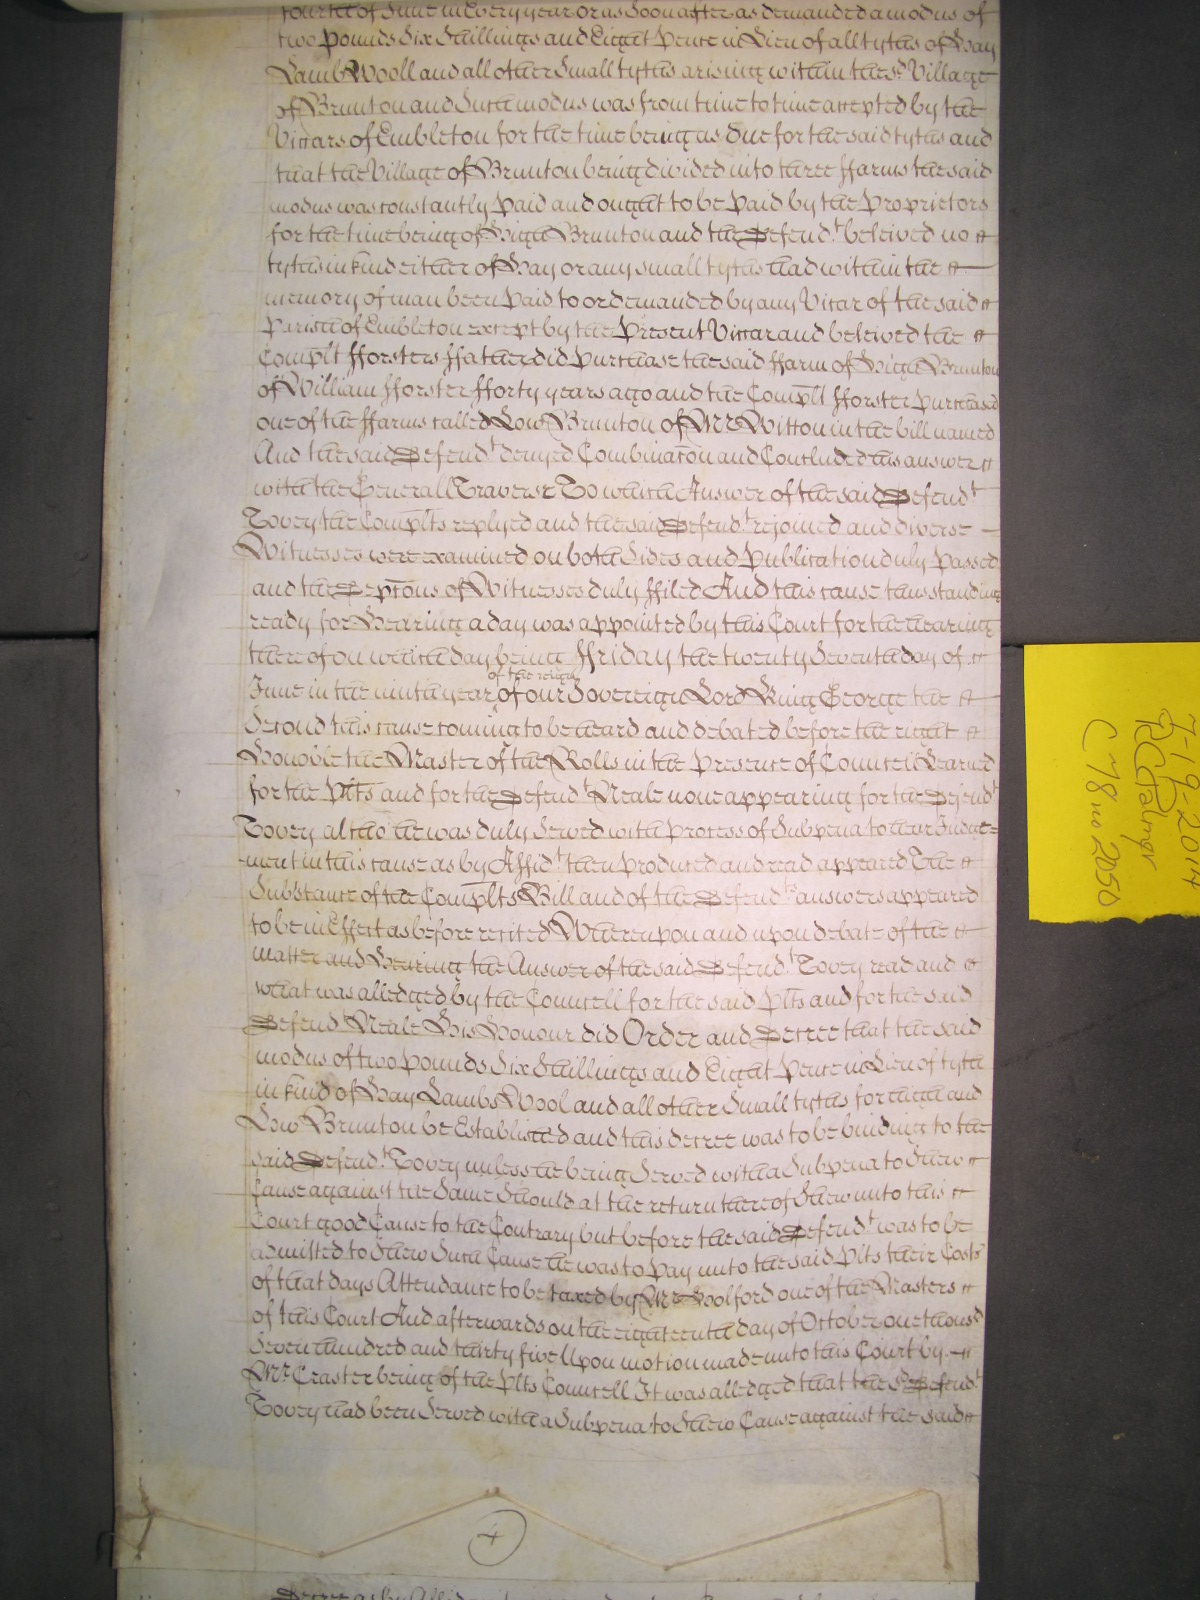 fourth of June in Every year or as Soon after as demanded a modus of
two Pounds Six Shillings and Eight Pence in Lieu of all tyths of Hay
Lamb Wooll and all other Small tyths arising within the sd. Village
of Brunton and Such modus was from time to time accepted by the
Viccars of Embleton for the time being as due for the said tyths and
that the Village of Brunton being divided into three ffarms the said
modus was constantly Paid and ought to be Paid by the Proprietors
for the time being of High Brunton and the Defend.t beleived no
tyths in kind either of Hay or any small tyths had within the
memory of man been Paid to or demanded by any Vicar of the said
Parish of Embleton except by the Present Viccar and beleived the
Complt fforsters ffather did Purchase the said ffarm of High Brunton
of William fforster fforty years ago and the Complt fforster Purchased
one of the ffarms called Low Brunton of Mr. Witton in the bill named
And the said Defend.t denyed Combinacon and Concluded his answer
with the Generall Traverse To which Answer of the said Defend.t
Tovey the Complts replyed and the said Defend.t rejoined and diverse
Witnesses were examined on both Sides and Publication duly Passed
and the Depcons of Witnesses duly ffiled And this cause thus standing
ready for Hearing a day was appointed by this Court for the hearing
thereof on which day being ffriday the twenty Seventh day of
of the reign
June in the ninth year of our Sovereign Lord King George the
Second this cause coming to be heard and debated before the right
Honoble the Master of the Rolls in the Presence of Councel Learned
for the Plts and for the Defend.t Neale none appearing for the Defend.t
Tovey altho he was duly Served with process of Subpena to hear Judge=
=ment in this cause as by Affid.t then Produced and read appeared The
Substance of the Complts Bill and of the Defend.ts answers appeared
to be in Effect as before recited Whereupon and upon debate of the
matter and Hearing the Answer of the said Defend.t Tovey read and
what was alledged by the Councell for the said Plts and for the said
Defend.t Neale His Honour did Order and Decree that the said
modus of two Pounds Six Shillings and Eight Pence in Lieu of tyth
in kind of Hay Lambs Wool and all other Small tyths for high and
Low Brunton be Established and this decree was to be binding to the
said Defend.t Tovey unless he being Served with a Subpena to Shew
Cause against the Same Should at the return thereof Shew unto this
Court good Cause to the Contrary but before the said Defend.t was to be
admitted to Shew Such Cause he was to Pay unto the said Plts their Costs
of that days Attendance to be taxed by Mr. Holford one of the Masters
of this Court And afterwards on the eighteenth day of October one thousd
Seven hundred and thirty five Upon motion made unto this Court by
Mr. Craster being of the Plts Councell It was alledged that the sd. Defend.t
Tovey had been Served with a Subpena to Shew Cause against the said
4
Decree as by
7-19-2014
RCPalmer
C 78 no 2050